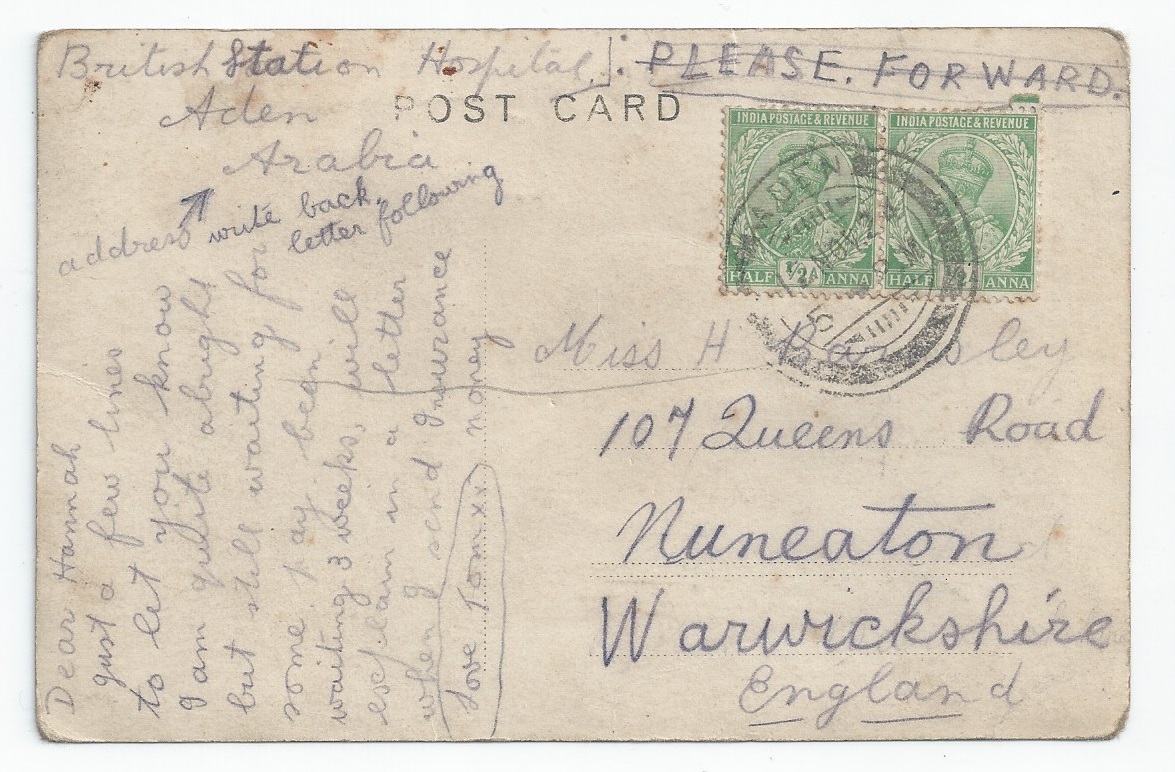 British Station Hospital. PLEASE. FORWARD.
Aden
Arabia
POST CARD
address write back,
letter following
INDIA POSTAGE & REVENUE
HALF 1/2A ANNA
INDIA POSTAGE & REVENUE
HALF ANNA
ADEN
Miss H
107 Queens Road
Nuneaton
Warwickshire
England
Dear Hannah
just a few lines
to let you know
I am quite alright
but still waiting for
some pay, been
waiting 3 weeks, will
explain in a letter
when I send Insurance
money
Love Tom. xx.